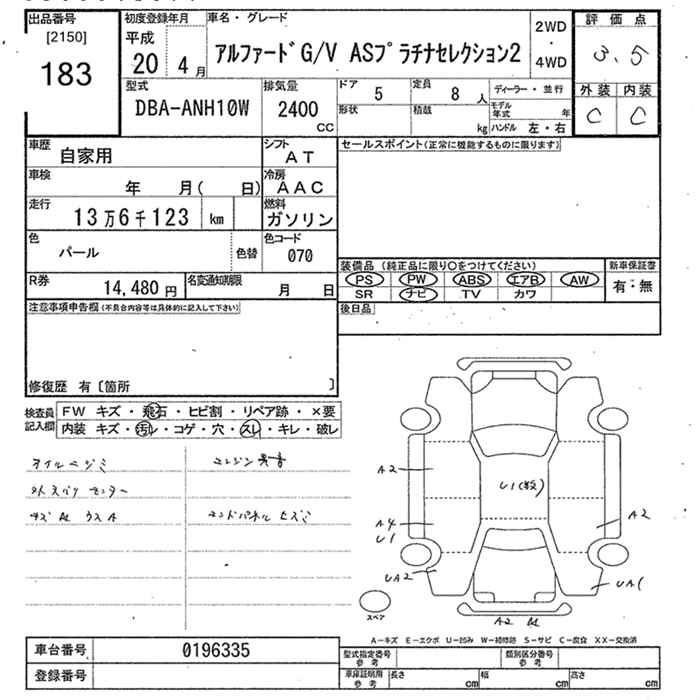 出品番号 初度登録年月 車名・グレード 2WD 評価点
[2150] 平成 ・ 3.5
183 20 4月 アルファードG/V ASプラチナセレクション2 4WD
型式 排気量 ドア 5 定員 8人 ディーラー・並行 外装 内装
DBA-ANH10W 2400cc 形状 積載 kg モデル年式 年 C C
ハンドル 左・右
車歴 自家用 シフト AT セールスポイント(正常に機能するものに限ります)
車検 年 月( 日) 冷房 AAC
走行 13万6千123 km 燃料 ガソリン
色 パール 色替 色コード 070
装備品(純正品に限り○をつけてください) 新車保証書
R券 14,480円 名変通知期限 月 日 PS PW ABS エアB AW 有・無
SR ナビ TV カワ
注意事項申告欄(不具合内容等は具体的に記入して下さい) 後日品
修復歴 有〔箇所 〕
検査員記入欄 FW キズ・飛石・ヒビ割・リペア跡・×要
内装 キズ・汚レ・コゲ・穴・スレ・キレ・破レ
オイルニジミ エンジン異音
エンドパネル ヒズミ
A2
U1(数)
A4 A2
U1
UA2 UA1
スペア A2
A-キズ E-エクボ U-凹み W-補修跡 S-サビ C-腐食 XX-交換済
車台番号 0196335 型式指定番号 参考 類別区分番号 参考
登録番号 車庫証明用 参考 長さ cm 幅 cm 高さ cm